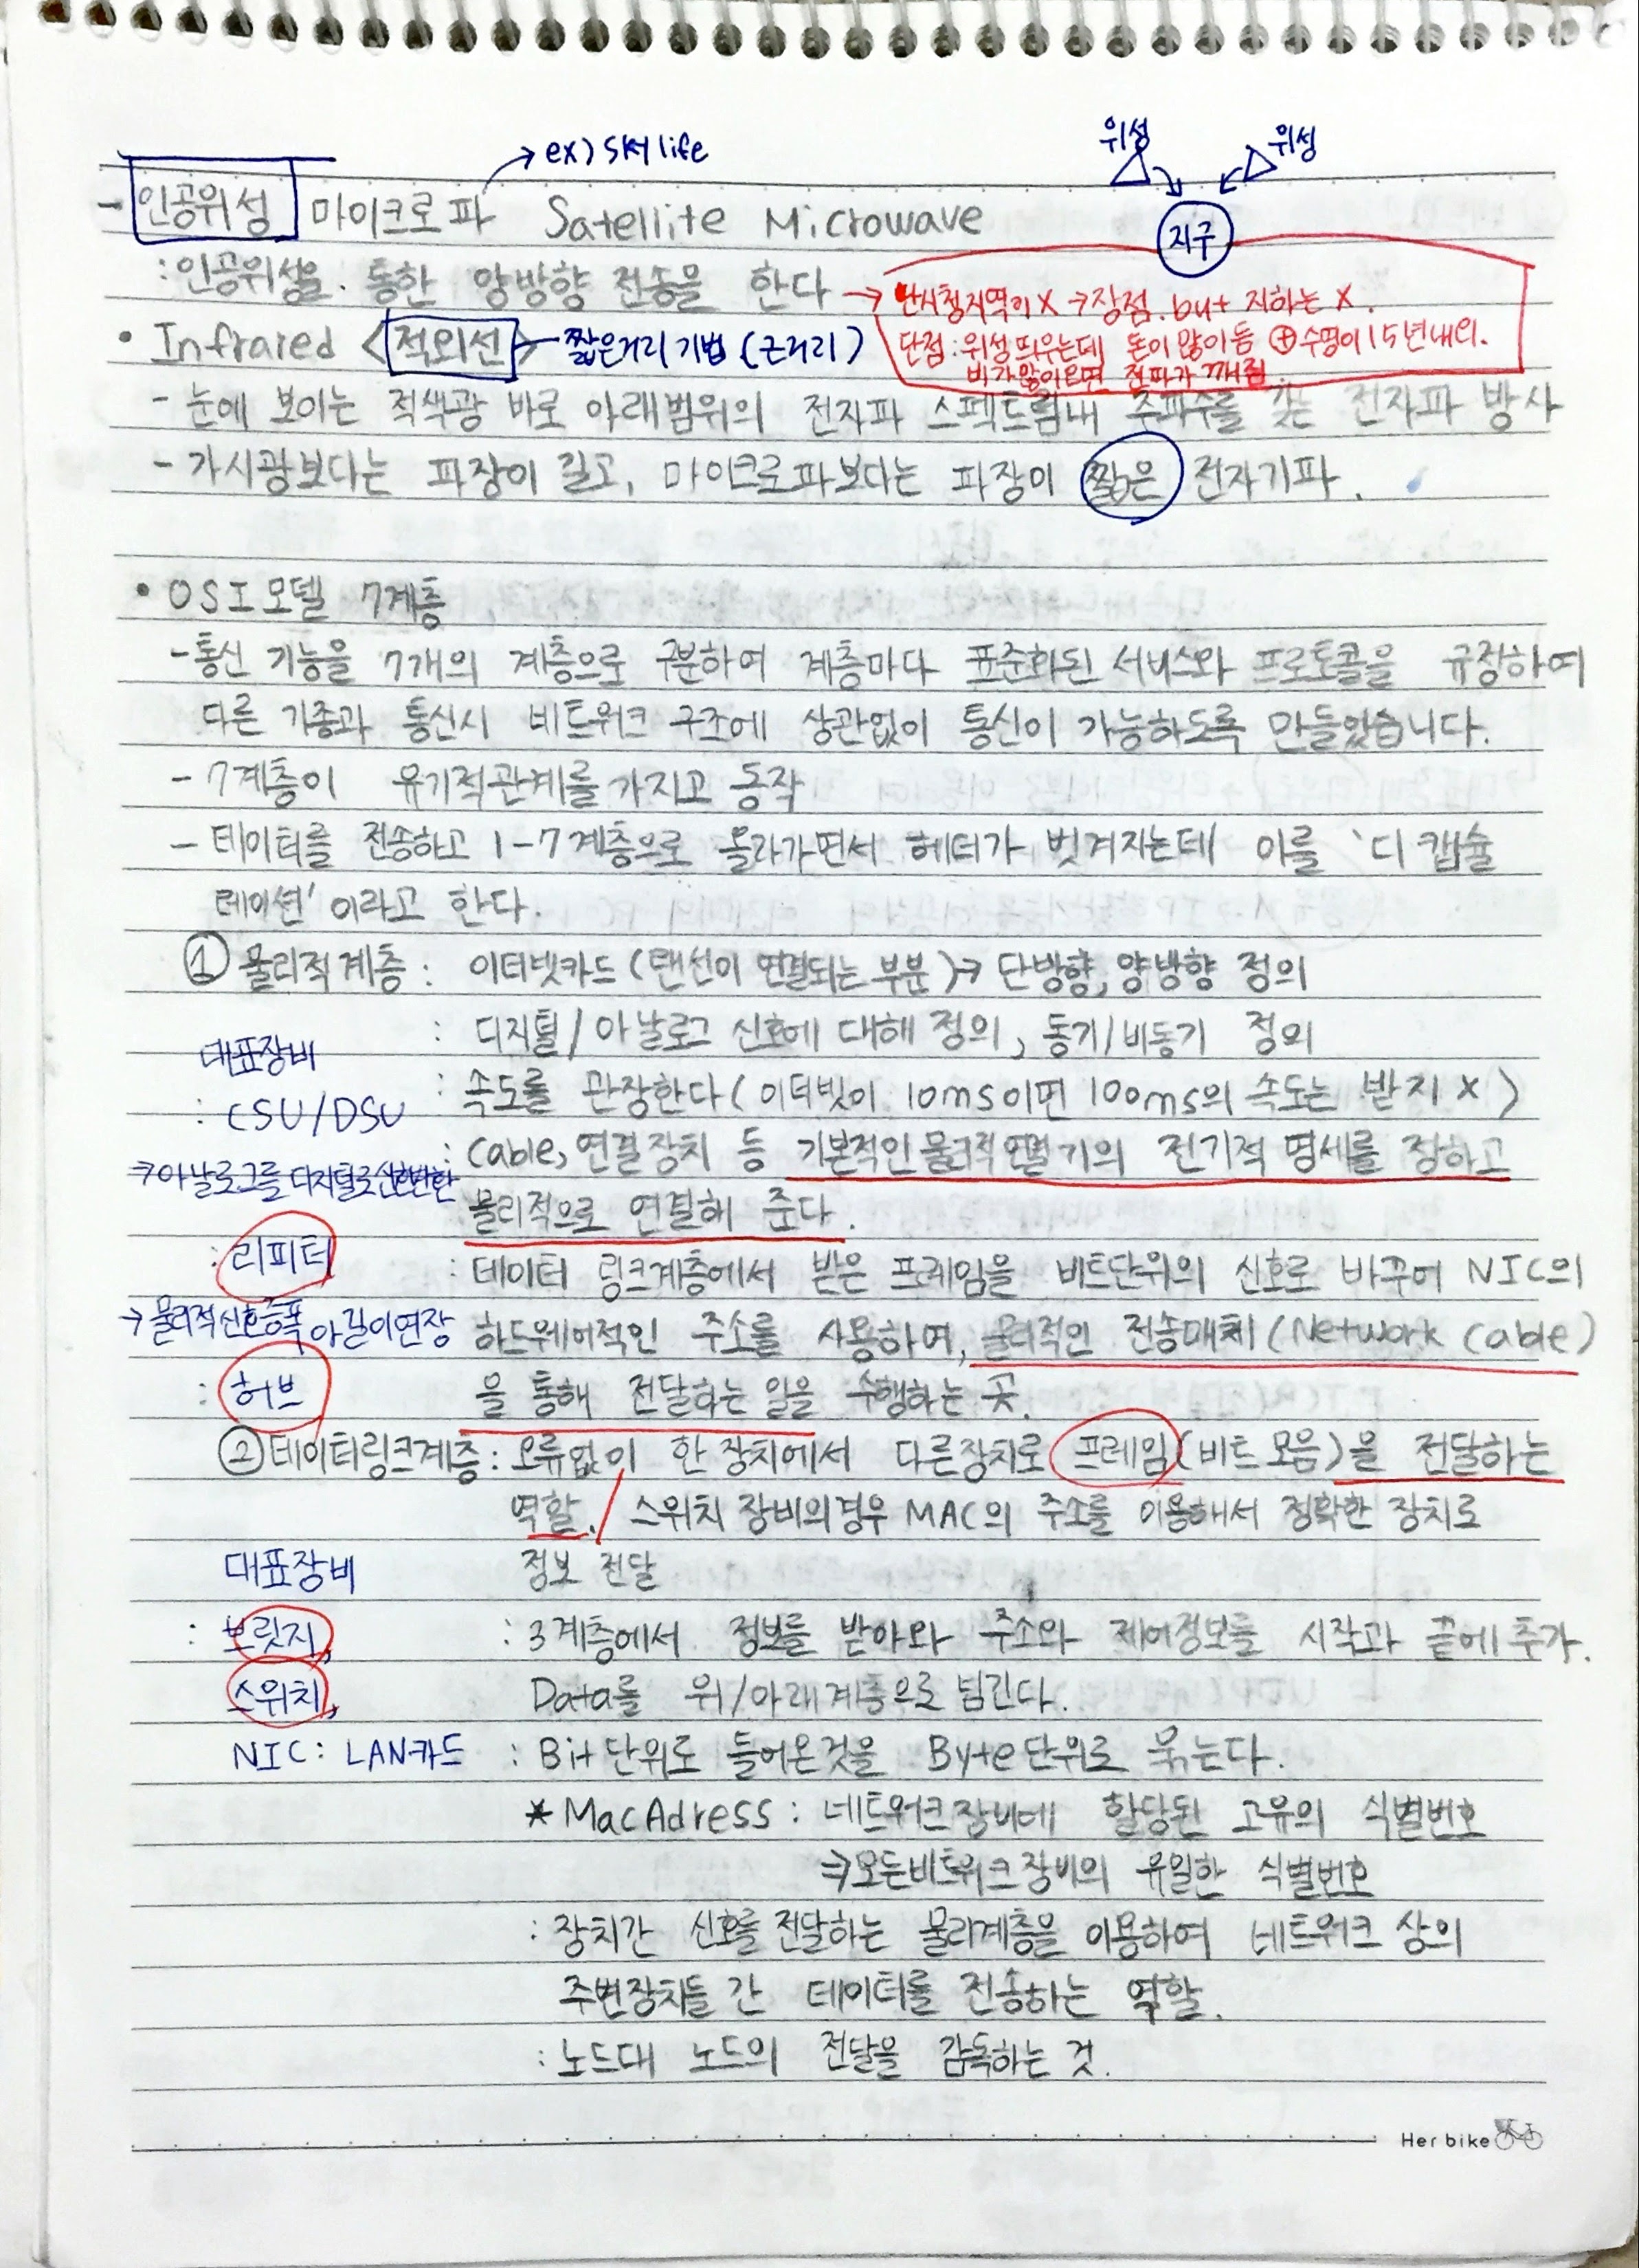 → ex) sky life
위성
위성
지구
- 인공위성 마이크로파 Satellite Microwave
: 인공위성을. 통한 양방향 전송을 한다
→ 난시청지역이 X → 장점. but 지하는 X.
단점 : 위성 띄우는데 돈이 많이 듬 ⊕ 수명이 15년내외.
비가많이오면 전파가 깨짐
• Infrared <적외선> 짧은거리 기법 (근거리)
- 눈에 보이는 적색광 바로 아래범위의 전자파 스펙트럼내 주파수를 갖는 전자파 방사
- 가시광보다는 파장이 길고, 마이크로파보다는 파장이 짧은 전자기파.
• OSI 모델 7계층
- 통신 기능을 7개의 계층으로 구분하여 계층마다 표준화된 서비스와 프로토콜을 규정하여
다른 기종과 통신시 네트워크 구조에 상관없이 통신이 가능하도록 만들었습니다.
- 7계층이 유기적관계를 가지고 동작
- 데이터를 전송하고 1-7계층으로 올라가면서 헤더가 벗겨지는데 이를 '디캡슐
레이션' 이라고 한다.
① 물리적계층 : 이더넷카드 (랜선이 연결되는 부분) → 단방향, 양방향 정의
: 디지털/아날로그 신호에 대해 정의, 동기/비동기 정의
대표장비
: 속도를 관장한다 (이더넷이 10ms이면 100ms의 속도는 받지 X)
: CSU/DSU
: Cable, 연결장치 등 기본적인 물리적 연결기의 전기적 명세를 정하고
→ 아날로그를 디지털로 신호변환
물리적으로 연결해 준다.
: 리피터
: 데이터 링크계층에서 받은 프레임을 비트단위의 신호로 바꾸어 NIC의
→ 물리적신호증폭 길이연장
하드웨어적인 주소를 사용하여, 물리적인 전송매체 (Network Cable)
: 허브
을 통해 전달하는 일을 수행하는 곳.
② 데이터링크계층 : 오류없이 한 장치에서 다른장치로 프레임(비트 모음)을 전달하는
역할. / 스위치 장비의경우 MAC의 주소를 이용해서 정확한 장치로
대표장비
정보 전달
: 브릿지,
: 3계층에서 정보를 받아와 주소와 제어정보를 시작과 끝에 추가.
스위치,
Data를 위/아래계층으로 넘긴다.
NIC : LAN카드
: Bit단위로 들어온것을 Byte단위로 묶는다.
* MacAdress : 네트워크장비에 할당된 고유의 식별번호
⇒ 모든네트워크장비의 유일한 식별번호
: 장치간 신호를 전달하는 물리계층을 이용하여 네트워크 상의
주변장치들 간 데이터를 전송하는 역할.
: 노드대 노드의 전달을 감독하는 것.
Her bike